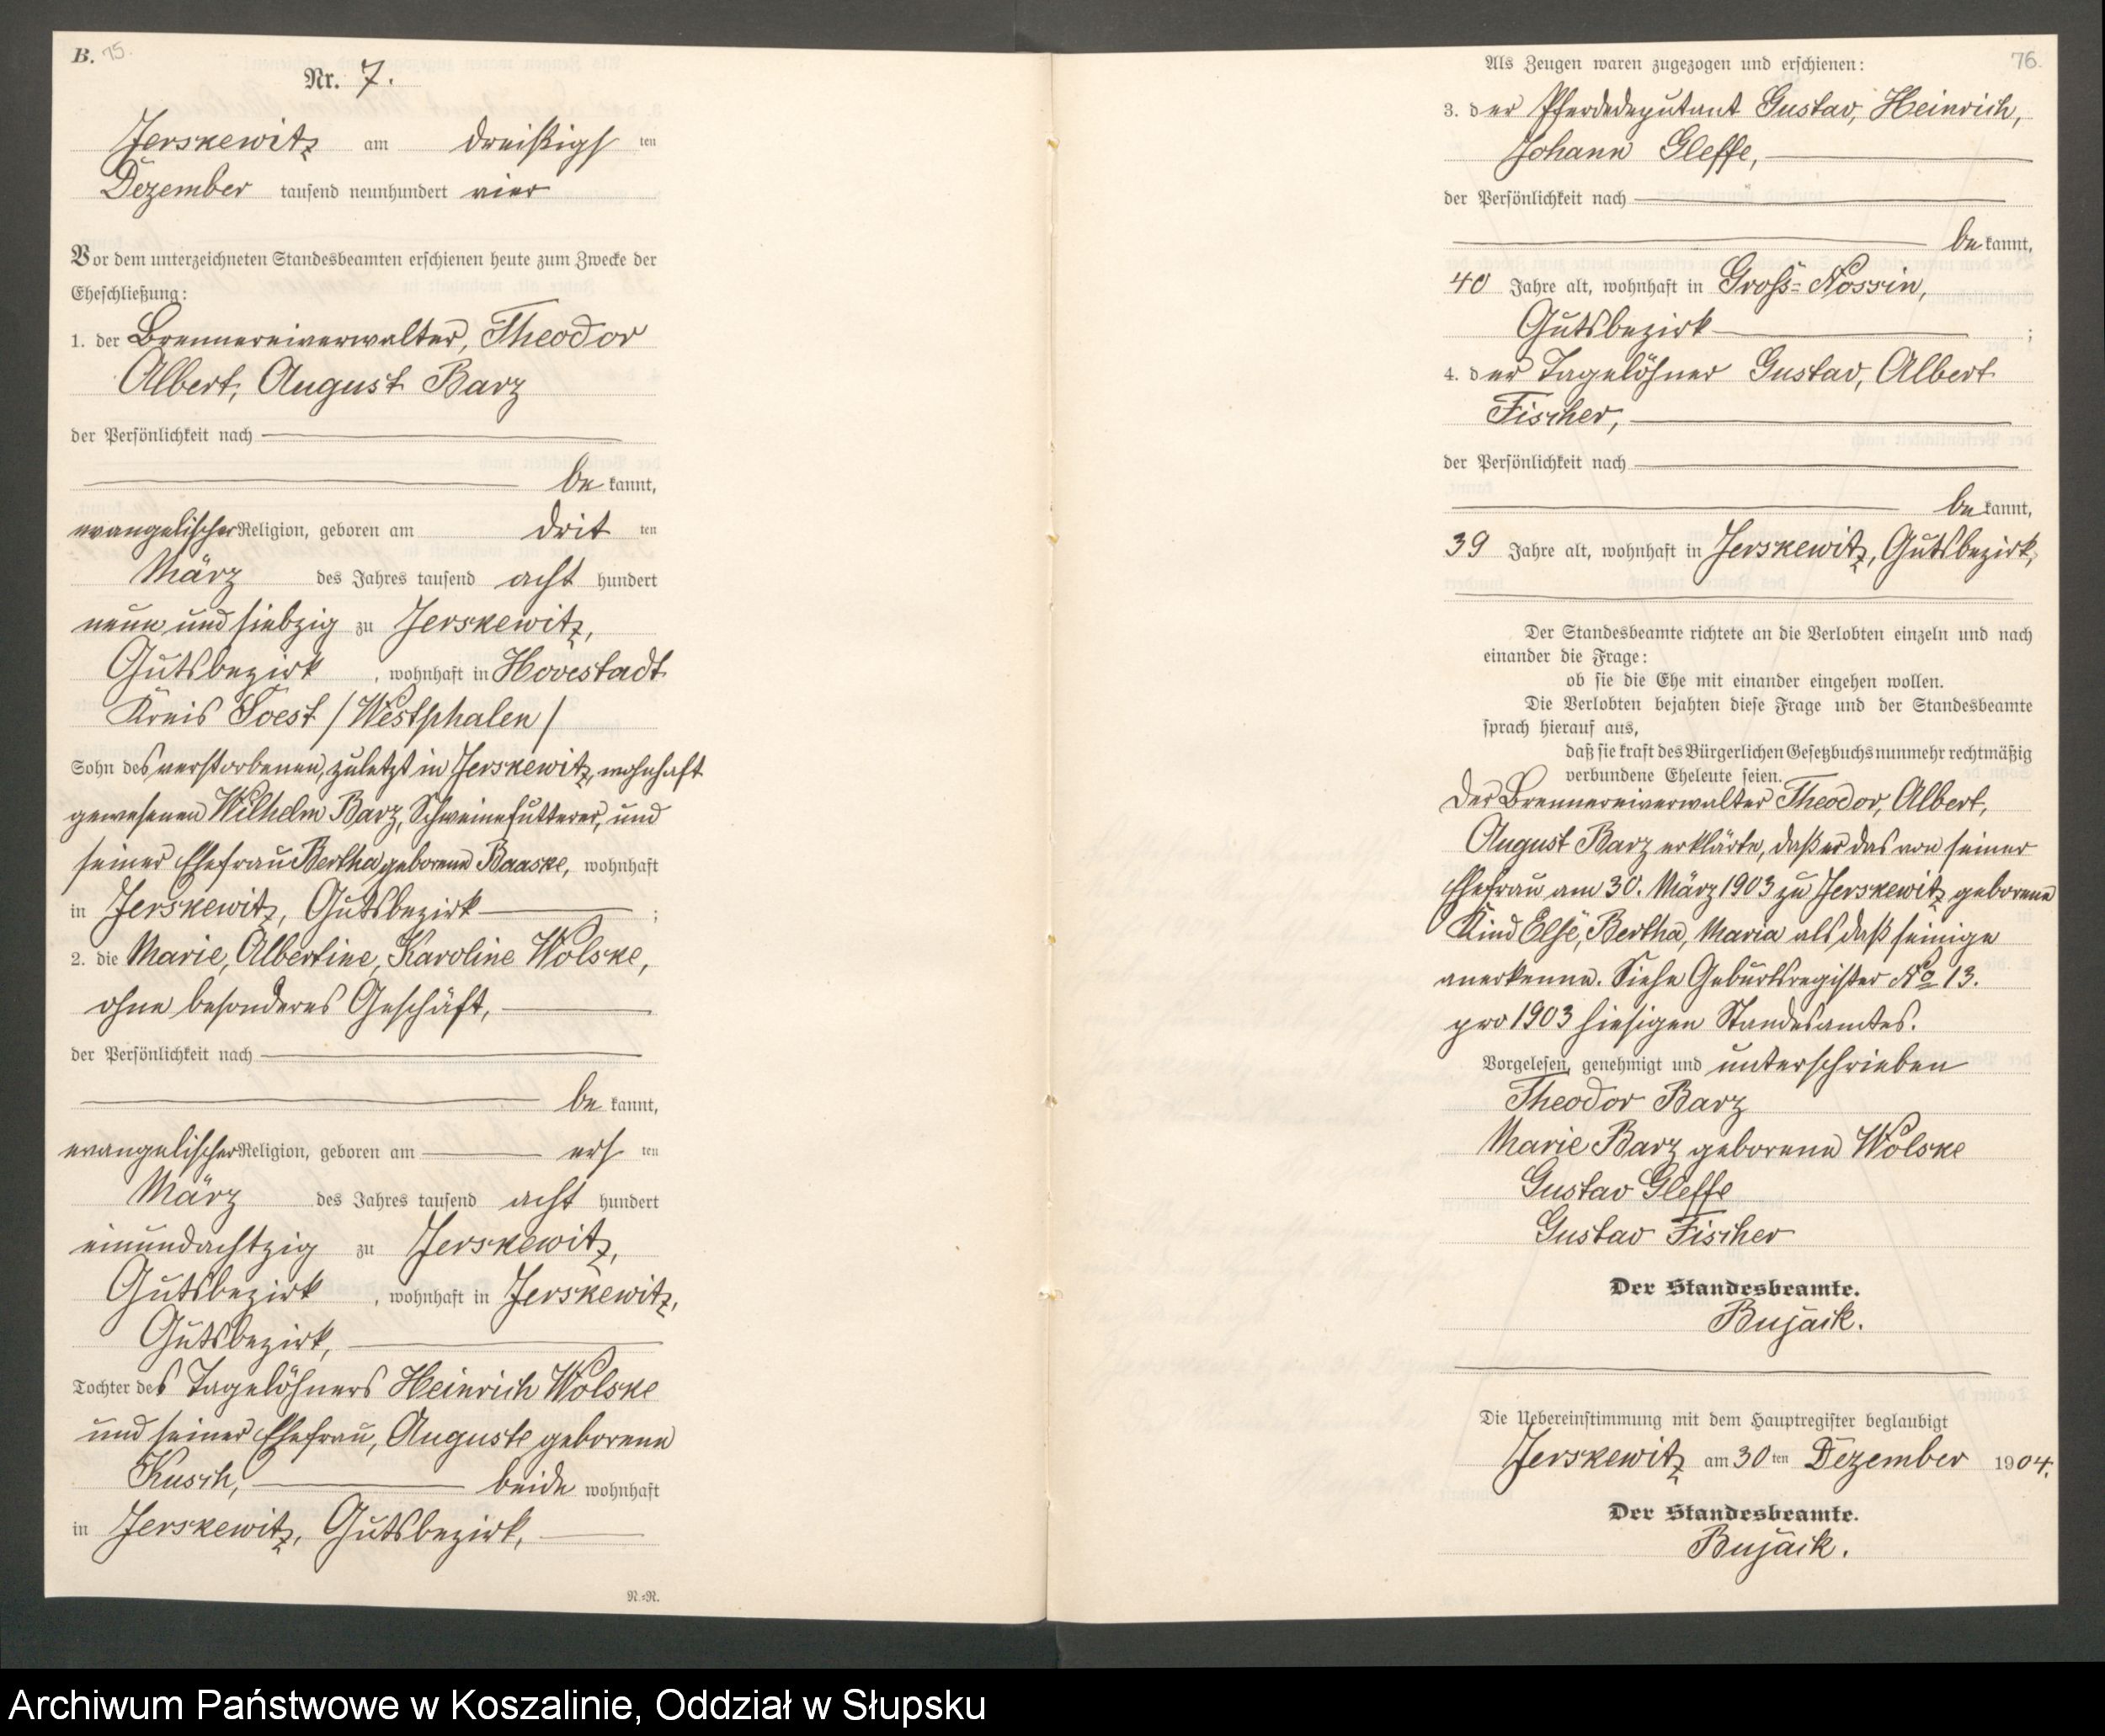 B. 75.
Nr. 7.
Jerskewitz am dreißigsten
Dezember tausend neunhundert vier
Vor dem unterzeichneten Standesbeamten erschienen heute zum Zwecke der
Eheschließung:
1. der Brennereiverwalter, Theodor
Albert, August Barz
der Persönlichkeit nach
bekannt,
evangelischer Religion, geboren am dritten
März des Jahres tausend acht hundert
neun und siebzig zu Jerskewitz,
Gutsbezirk, wohnhaft in Hovestadt
Kreis Soest / Westphalen /
Sohn des verstorbenen, zuletzt in Jerskewitz, wohnhaft
gewesenen Wilhelm Barz, Schweinefutterer, und
seiner Ehefrau Bertha geborene Baaske, wohnhaft
in Jerskewitz, Gutsbezirk ;
2. die Marie, Albertine, Karoline Wolske,
ohne besonderes Geschäft,
der Persönlichkeit nach
bekannt,
evangelischer Religion, geboren am ersten
März des Jahres tausend acht hundert
einundachtzig zu Jerskewitz,
Gutsbezirk, wohnhaft in Jerskewitz,
Gutsbezirk,
Tochter des Tagelöhners Heinrich Wolske
und seiner Ehefrau, Auguste geborene
Kusch, beide wohnhaft
in Jerskewitz, Gutsbezirk,
N.=R.
76.
Als Zeugen waren zugezogen und erschienen:
3. der Pferdedeputant Gustav, Heinrich,
Johann Gleffe,
der Persönlichkeit nach
bekannt,
40 Jahre alt, wohnhaft in Gross=Nossin,
Gutsbezirk ;
4. der Tagelöhner Gustav, Albert
Fischer,
der Persönlichkeit nach
bekannt,
39 Jahre alt, wohnhaft in Jerskewitz, Gutsbezirk,
Der Standesbeamte richtete an die Verlobten einzeln und nach
einander die Frage:
ob sie die Ehe mit einander eingehen wollen.
Die Verlobten bejahten diese Frage und der Standesbeamte
sprach hierauf aus,
daß sie kraft des Bürgerlichen Gesetzbuchs nunmehr rechtmäßig
verbundene Eheleute seien.
Der Brennereiverwalter Theodor, Albert,
August Barz erklärte, daß er das von seiner
Ehefrau am 30. März 1903 zu Jerskewitz geborene
Kind Else, Bertha, Maria als daß seinige
anerkenne. Siehe Geburtsregister No 13.
pro 1903 hiesigen Standesamtes.
Vorgelesen, genehmigt und unterschrieben
Theodor Barz
Marie Barz geborene Wolske
Gustav Gleffe
Gustav Fischer
Der Standesbeamte.
Bujack.
Die Uebereinstimmung mit dem Hauptregister beglaubigt
Jerskewitz am 30ten Dezember 1904.
Der Standesbeamte.
Bujack.
Archiwum Państwowe w Koszalinie, Oddział w Słupsku